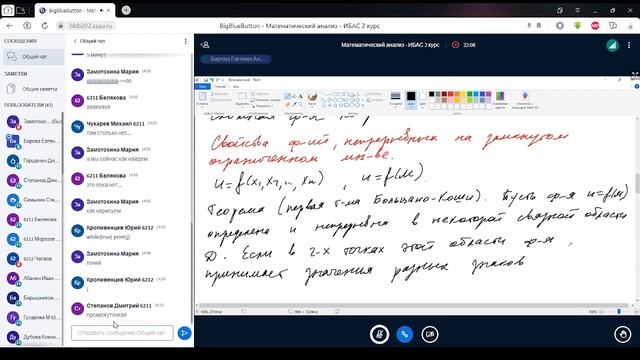 BigBlueButton - Математический анализ - ИБАС 2 курс
bbb202.ssau.ru
BigBlueButton - Математический анализ - ИБАС 2 курс
СООБЩЕНИЯ
Общий чат
ЗАМЕТКИ
Общие заметки
ПОЛЬЗОВАТЕЛИ (41)
Замотохина
Барова Евген
6211 Белякова
6212 Чепаев
Абанин Иван
Барышников
Гусарова М
Дубова Ксени
Общий чат
5 минут
Замотохина Мария 14:03
6211 Белякова
ахахахаха
Чукарев Михаил 6211
там столько нет...
Замотохина Мария
а мы сейчас как найдем
6211 Белякова
это пока нет...
Замотохина Мария
как нарисуем
Кропивенцев Юрий 6212
while(true) print()
Замотохина Мария
гений
Кропивенцев Юрий 6212
)
Степанов Дмитрий 6211
промежуточная
Отправить сообщение Общий чат
Математический анализ - ИБАС 2 курс
22:08
Барова Евгения Ан...
Свойства ф-ий, непрерывных на замкнутом
ограниченном мн-ве.
u=f(x₁,x₂,..,xₘ) , u=f(M).
Теорема (первая т-ма Больцано-Коши). Пусть ф-я u=f(M)
определена и непрерывна в некоторой связной области
D. Если в 2-х точках этой области ф-я
принимает значения разных знаков